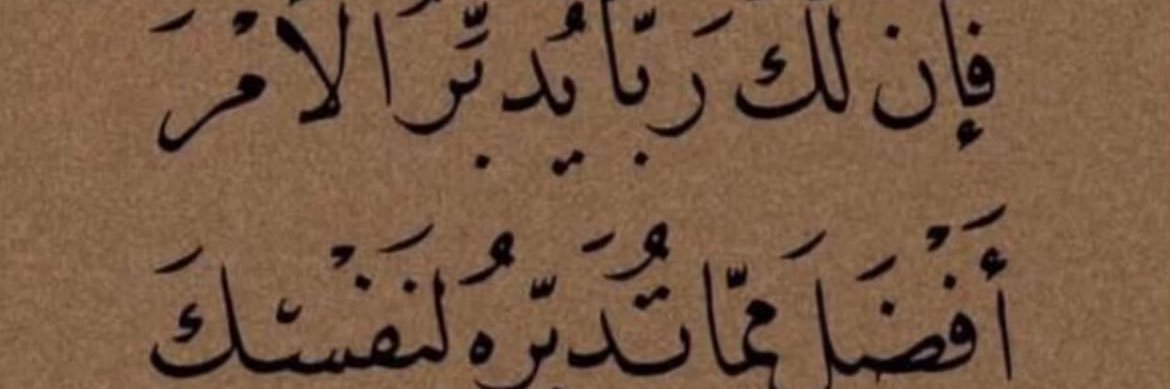 فإن لكَ رَبًّا يُدبِّرَ الأمْرَ
أفْضَلَ ممَّا تُدَبّرُه لنَفْسكَ